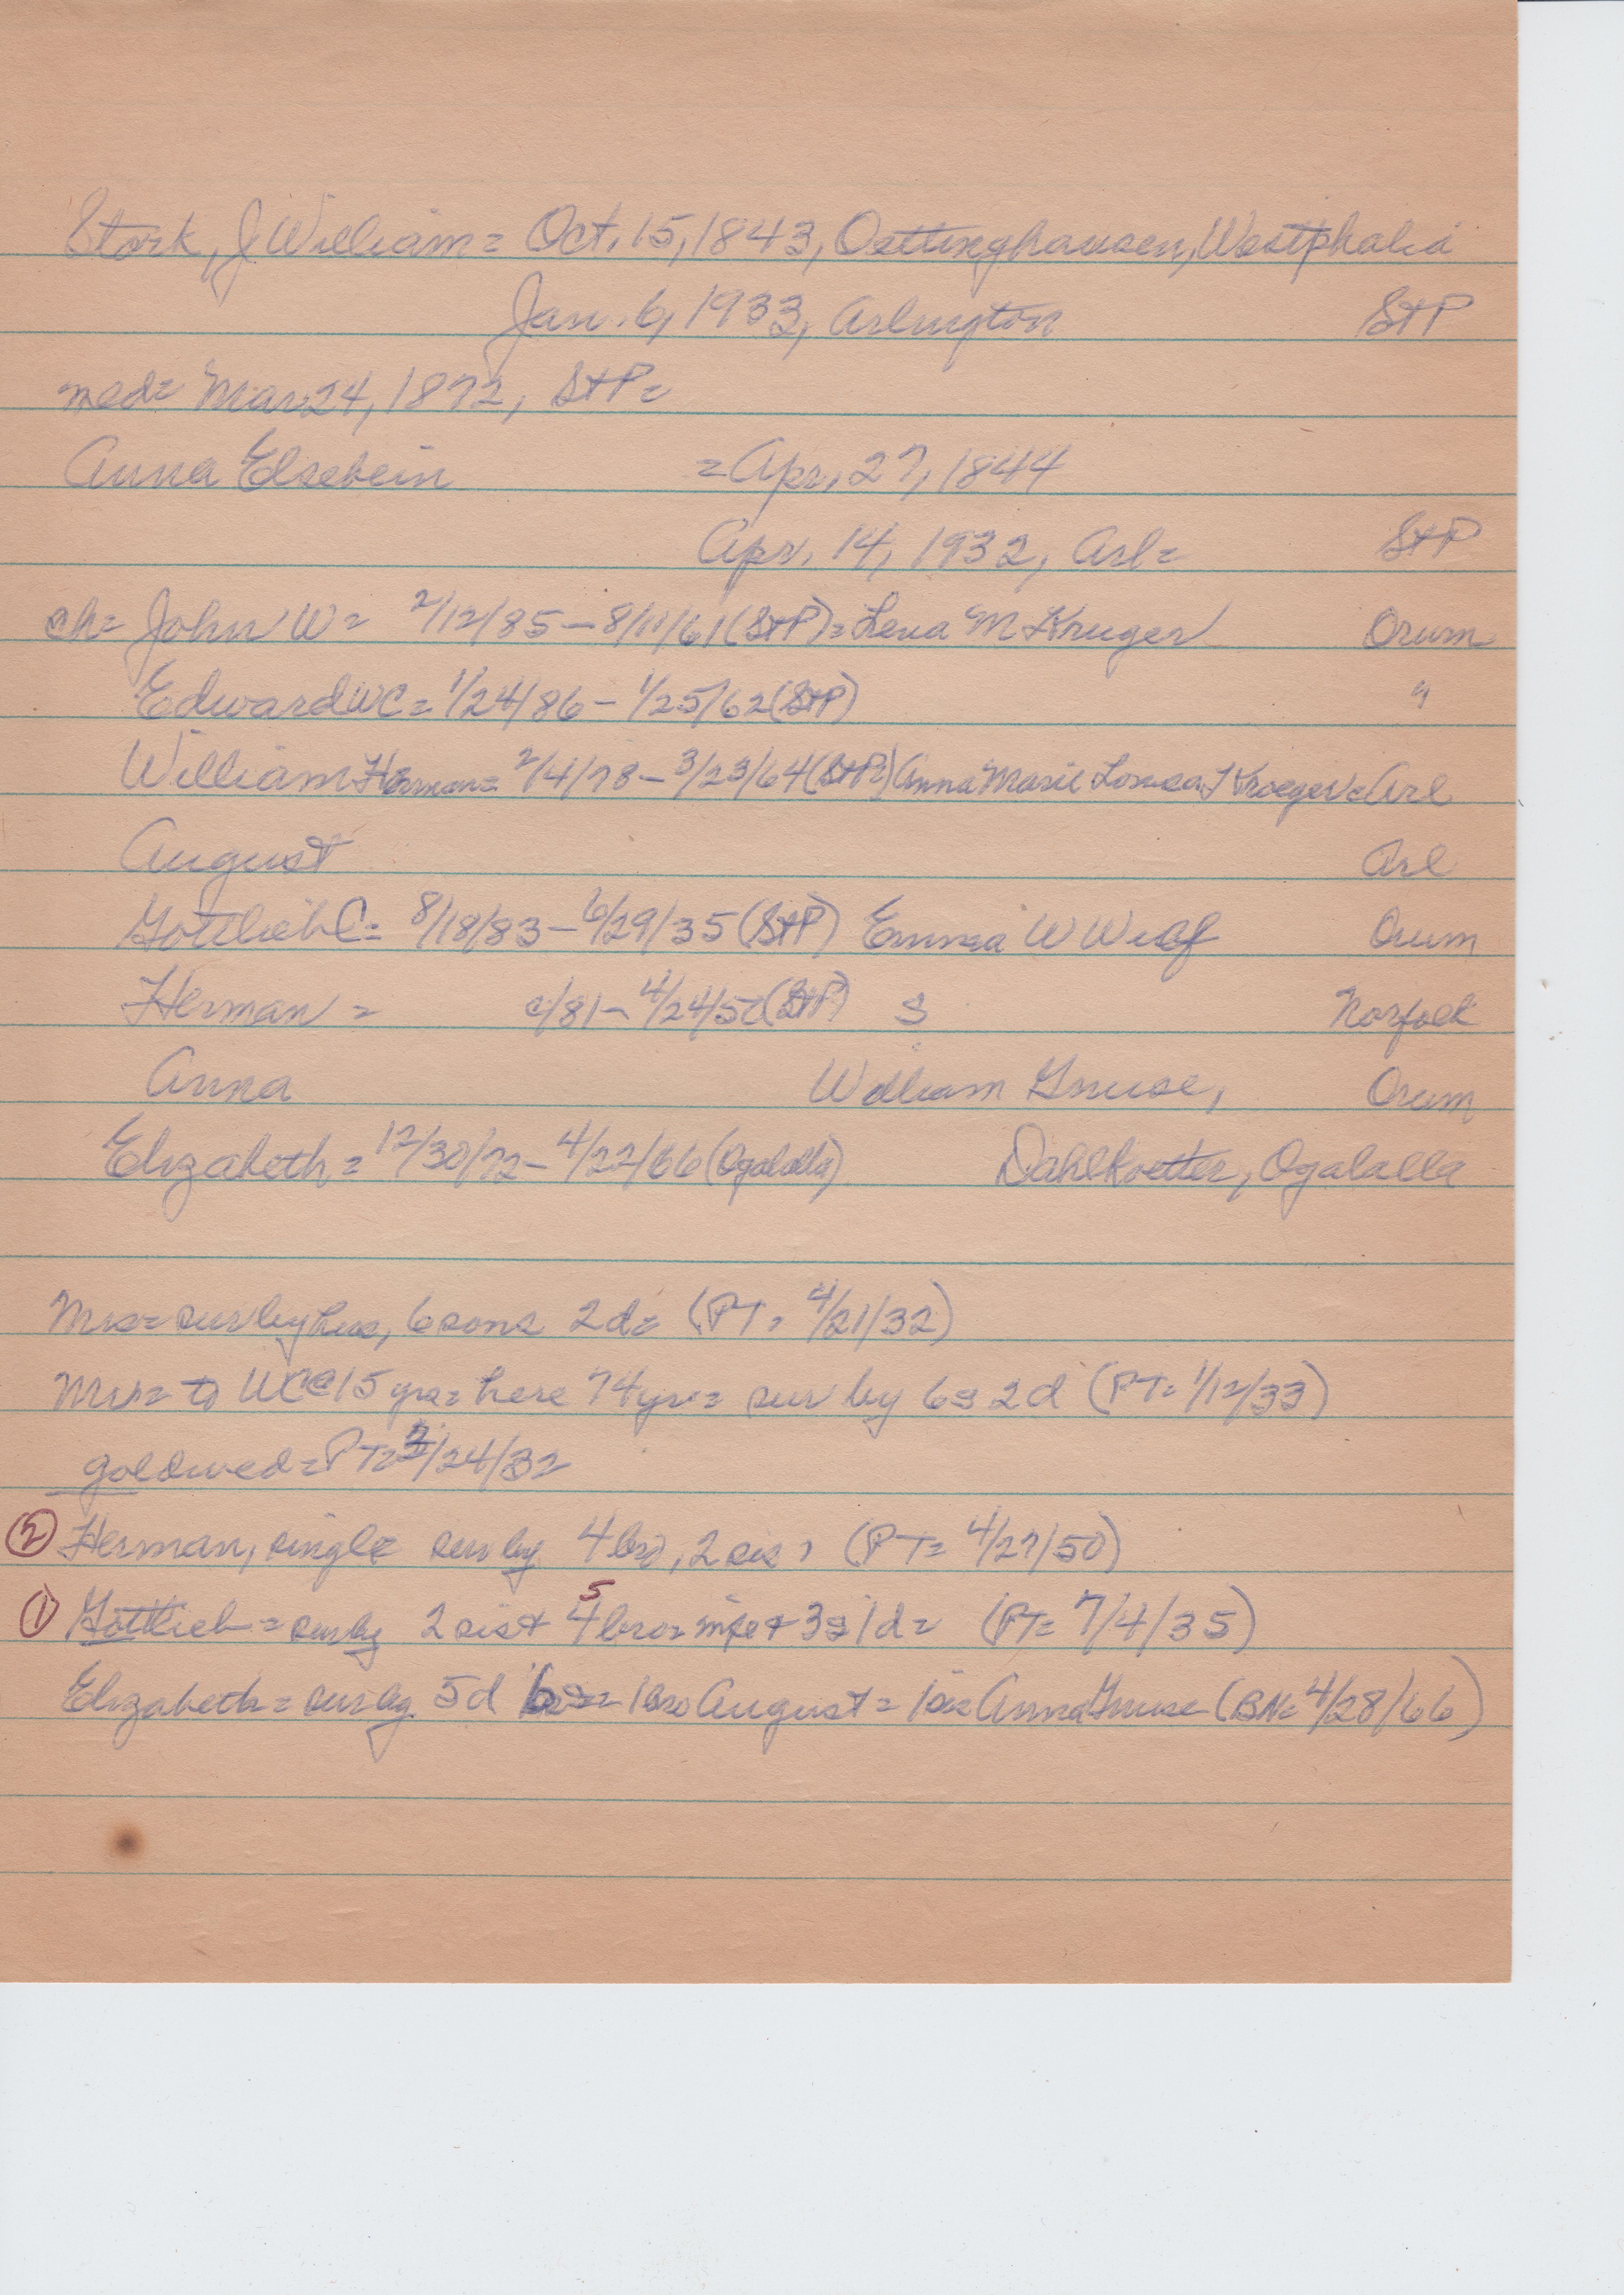 Stork, J William = Oct. 15, 1843, Oettinghausen, Westphalia
Jan. 6, 1933, Arlington StP
med = Mar 24, 1872, StP =
Anna Elsebein = Apr. 27, 1844
Apr. 14, 1932, Arl = StP
ch = John W = 2/12/85 - 8/11/61 (StP) = Lena M Kruger Orum
Edward WC = 1/24/86 - 1/25/62 (StP) "
William Herman = 2/4/78 - 3/23/64 (StP) Anna Marie Louisa Kroeger = Arl
August Arl
Gottlieb C = 8/18/83 - 6/29/35 (StP) Emma W Wulf Orum
Herman = c/81 - 4/24/50 (StP) s Norfolk
Anna William Gnuse, Orum
Elizabeth = 12/30/72 - 4/22/66 (Ogalalla) Dahlkoetter, Ogalalla
Mrs = sur by hus, 6 sons 2 d = (PT, 4/21/32)
Mr = to WC @ 15 yrs = here 74 yrs = sur by 6 s 2 d (PT = 1/12/33)
gold wed = PT = 3/24/32
② Herman, single sur by 4 bro, 2 sis, (PT = 4/27/50)
① Gottlieb = sur by 2 sis + 4 5 bro = + 3 s 1 d = (PT = 7/4/35)
Elizabeth = sur by 5 d 6 s = 1 bro August = 1 sis Anna Gnuse (BN = 4/28/66)